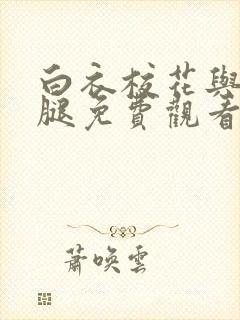 白衣校花與
腿免費觀看
蕭喚雲